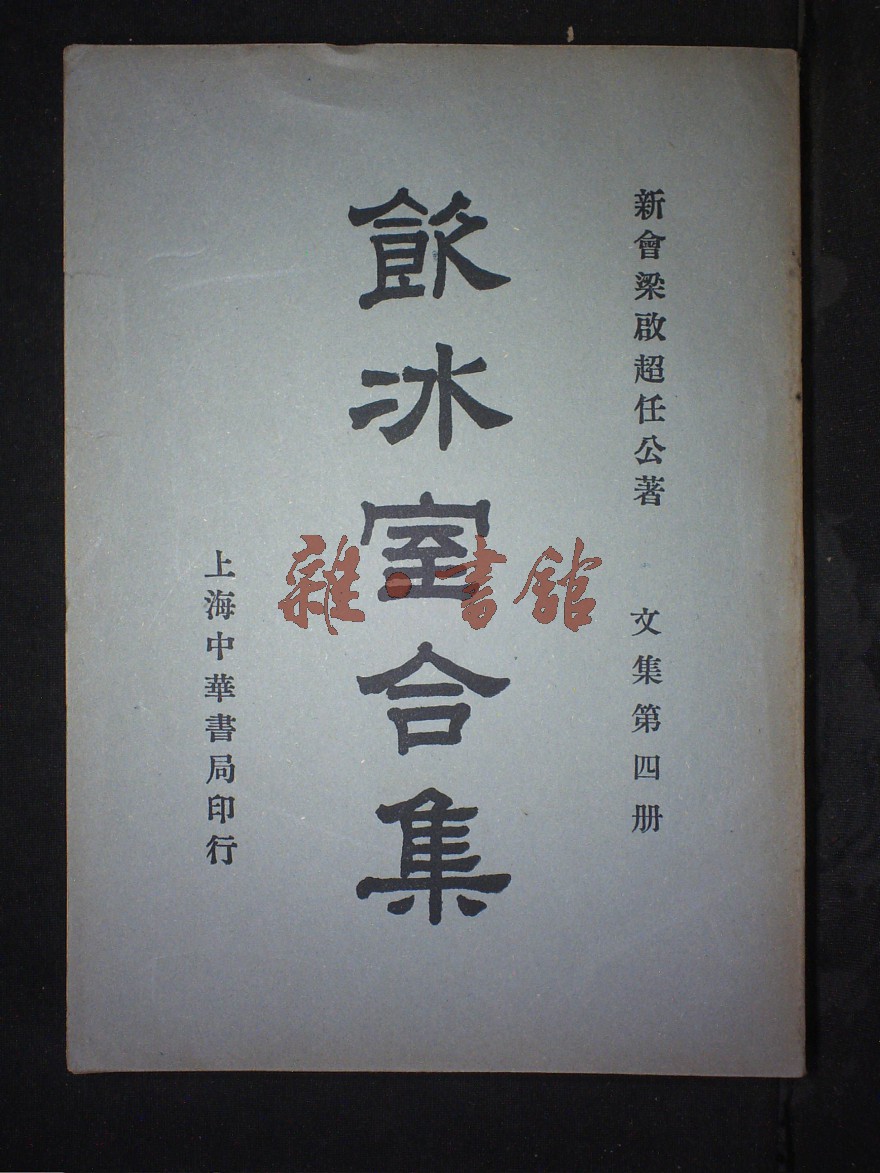 新會梁啟超任公著　文集第四册
飲冰室合集
上海中華書局印行
雜·書館